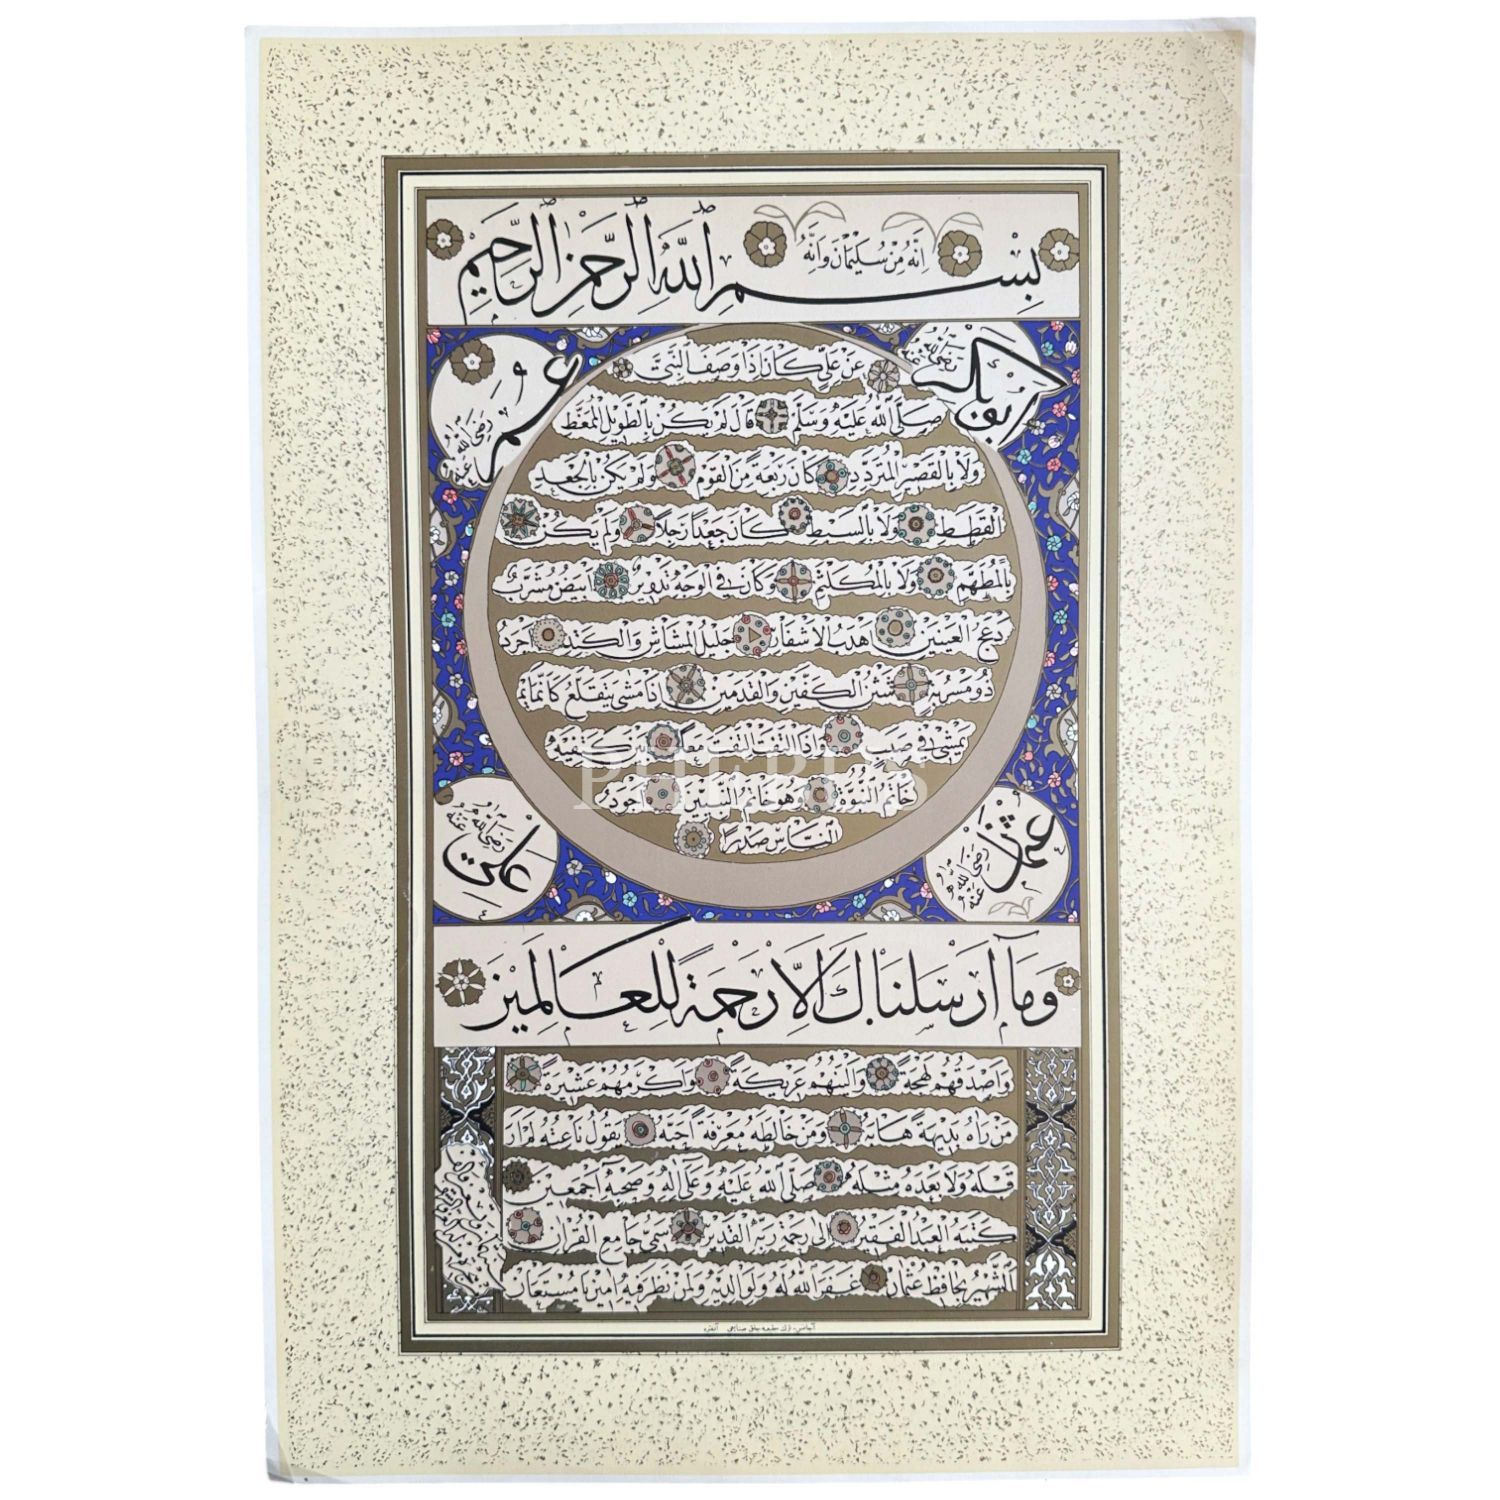 انه من سليمان وانه
بسم الله الرحمن الرحيم
ابو بكر رضى الله عنه
عمر رضى الله عنه
عن على كان اذا وصف النبى
صلى الله عليه وسلم قال لم يكن بالطويل الممغط
ولا بالقصير المتردد كان ربعة من القوم ولم يكن بالجعد
القطط ولا بالسبط كان جعدا رجلا ولم يكن
بالمطهم ولا بالمكلثم وكان فى الوجه تدوير ابيض مشرب
دعج العينين اهدب الاشفار جليل المشاش والكتد اجرد
ذو مسربة شثن الكفين والقدمين اذا مشى يتقلع كانما
يمشى فى صبب واذا التفت التفت معا بين كتفيه
خاتم النبوة وهو خاتم النبيين اجود
الناس صدرا
عثمان رضى الله عنه
على رضى الله عنه
وما ارسلناك الا رحمة للعالمين
واصدقهم لهجة والينهم عريكة واكرمهم عشيرة
من راه بديهة هابه ومن خالطه معرفة احبه يقول ناعته لم ار
قبله ولا بعده مثله صلى الله عليه وعلى اله وصحبه اجمعين
كتبه العبد الفقير الى رحمة ربه القدير سمى جامع القران
الشهير بحافظ عثمان غفر الله له ولوالديه ولمن نظر فيه امين يا مستعان
PHEBUS